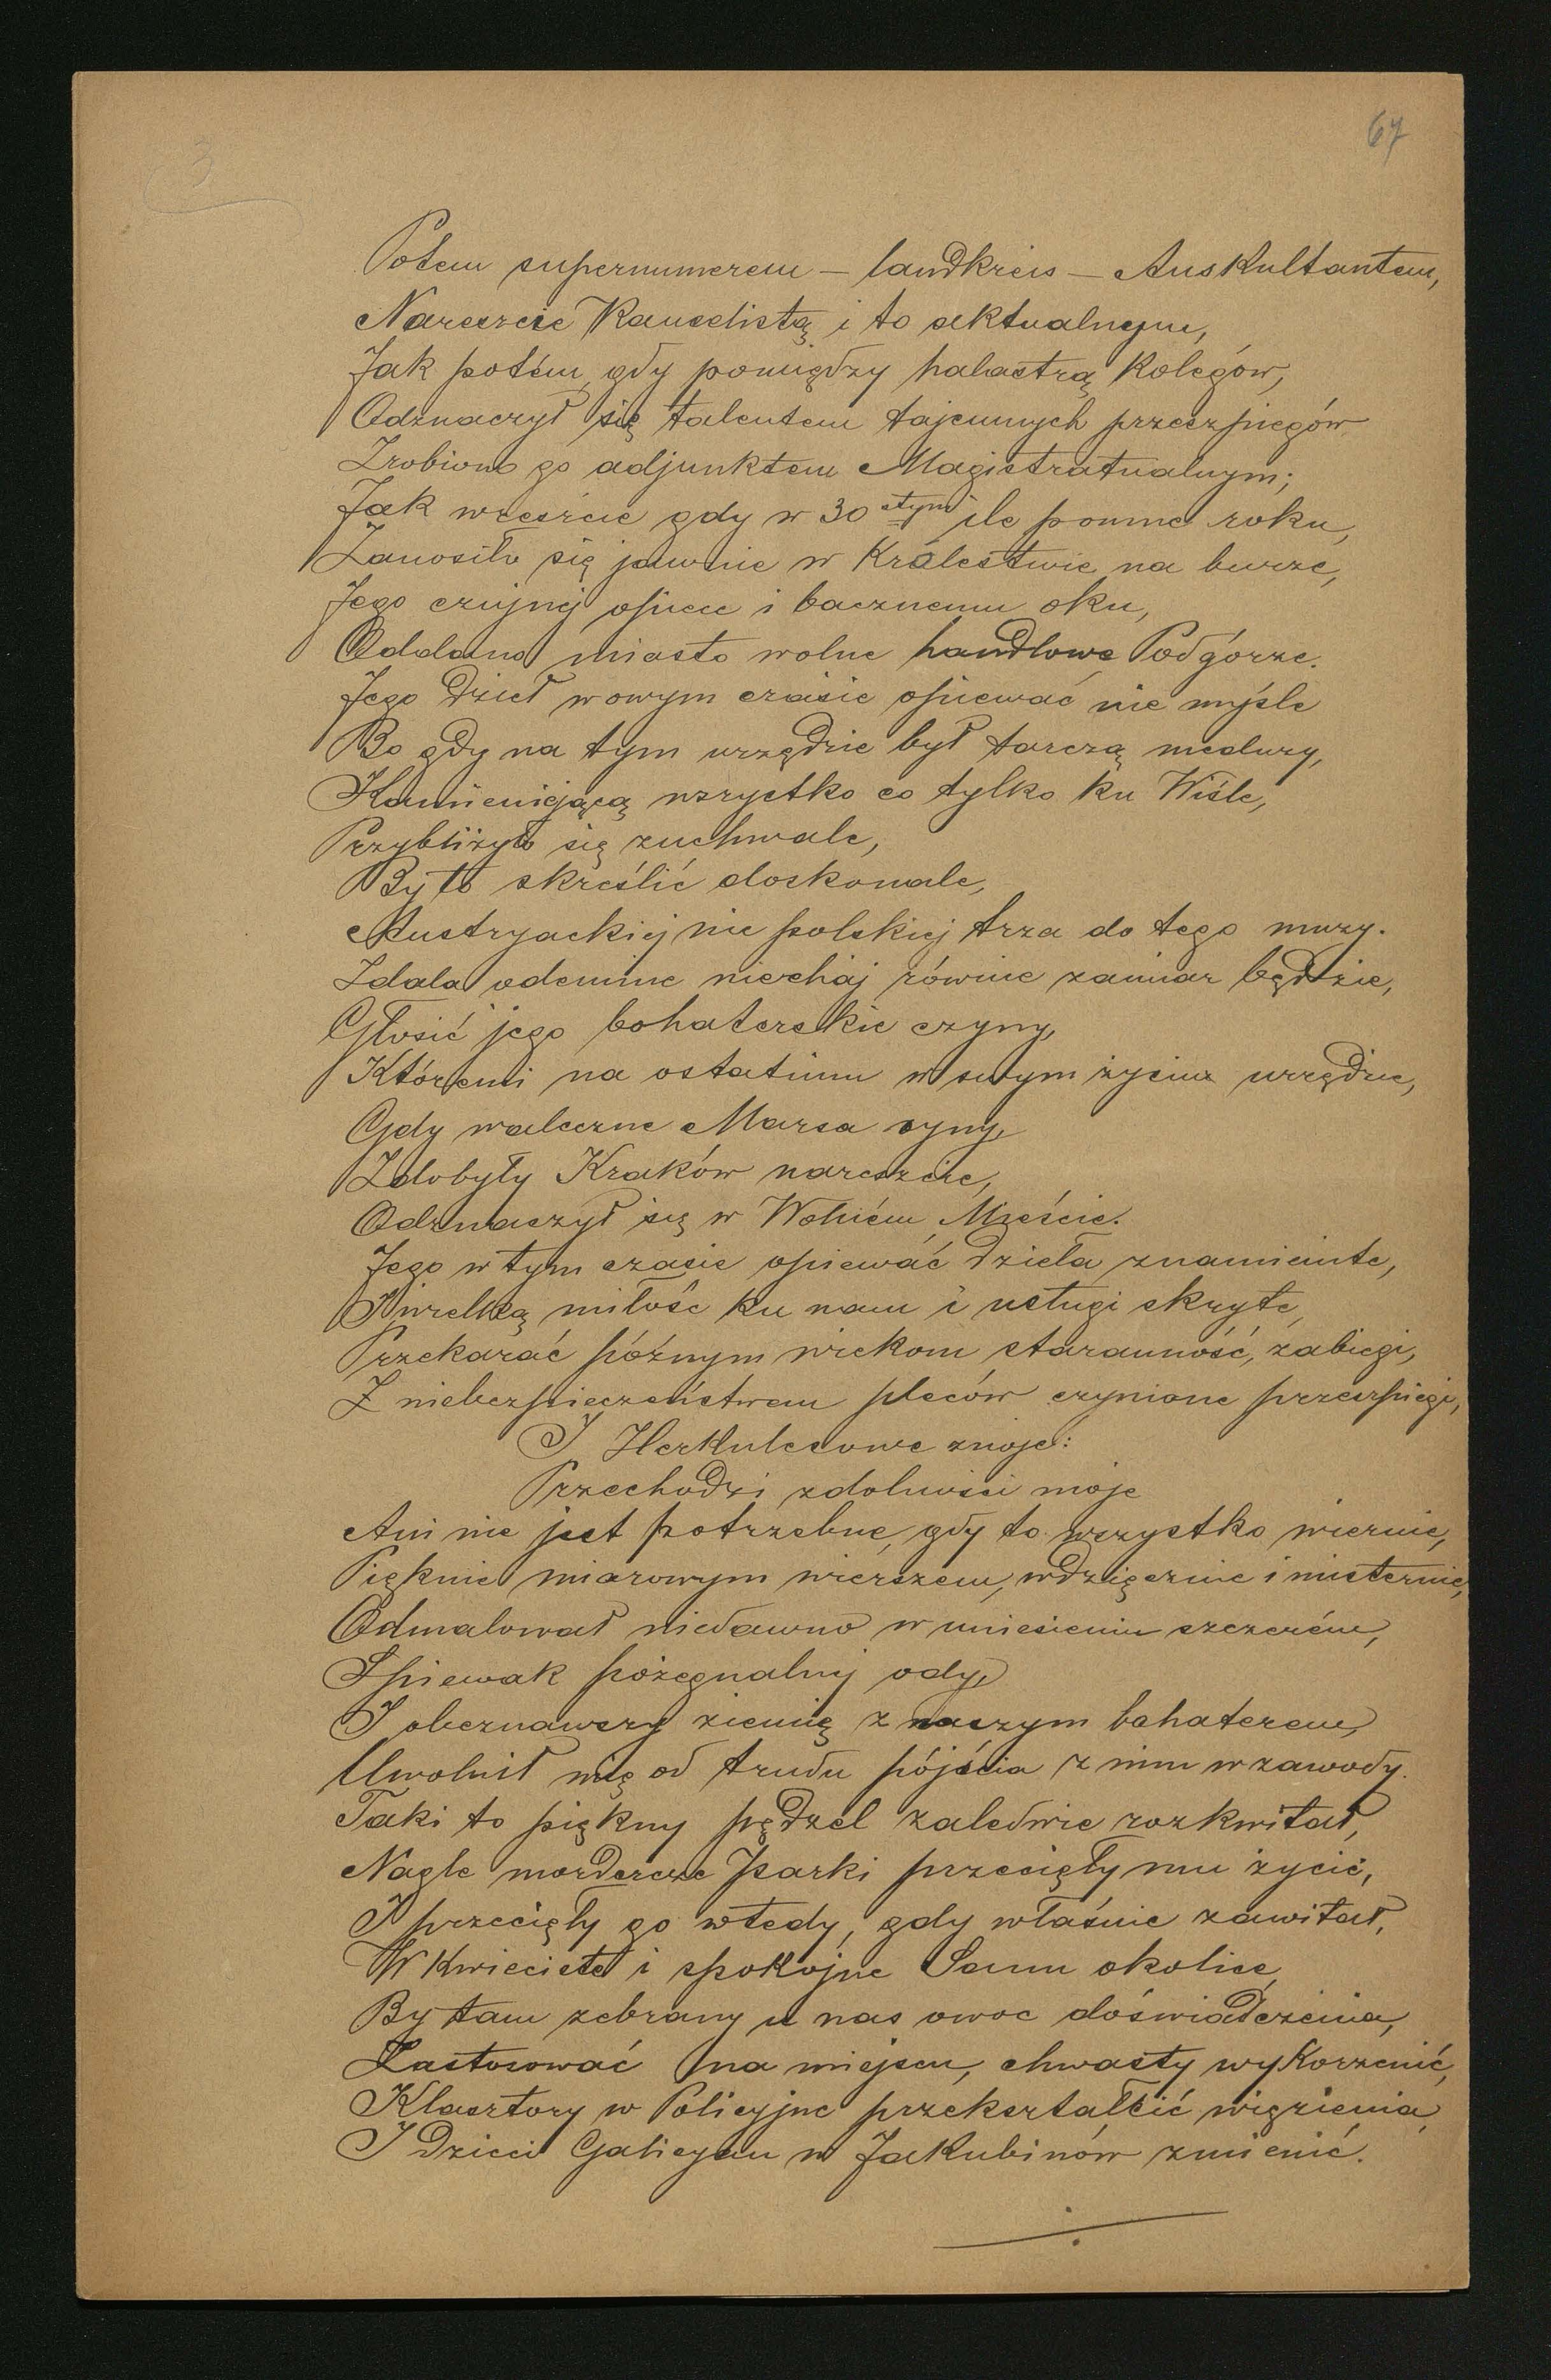 3
67
Potem supernumerem – landkreis – Auskultantem,
Nareszcie Kancelistą i to aktualnym,
Jak potém, gdy pomiędzy palastrą Kolegów,
Odznaczył się talentem tajemnych przeszpiegów
Zrobiono go adjunktem Magistratualnym;
Jak wreszcie gdy w 30 stym ile pomne roku,
Zanosiło się jawnie w Królestwie na burze,
Jego czujnéj opiece i bacznemu oku,
Oddano miasto wolne handlowe Podgórze.
Jego dzieł w owym czasie opiewać nie myśle
Bo gdy na tym urzędzie był tarczą meduzy,
Kamieniejącą wszystko co tylko ku Wiśle,
Przybliżyło się zuchwale,
By to skreślić doskonale,
Austryackiéj nie polskiéj trza do tego muzy.
Zdala odemine niechaj równie zamiar będzie,
Głosić jego bohaterskie czyny,
Któremi na ostatnim w swym życiu urzędzie,
Gdy waleczne Marsa syny,
Zdobyły Kraków nareszcie,
Odznaczył się w Wolném Mieście.
Jego w tym czasie opiewać dzieła znamienite,
I wielką miłość ku nam i usługi skryte,
Przekazać późnym wiekom staranność, zabiegi,
Z niebezpieczeństwem pleców czynione przeszpiegi,
I Herkulesowe znoje:
Przechodzi zdolności moje
Ani nie jest potrzebne, gdy to wszystko wiernie,
Pięknie miarowym wierszem, wdzięcznie i misternie,
Odmalował niedawno w uniesieniu szczerém,
Spiewak pożegnalnéj ody,
I obeznawszy ziemię z naszym bohaterem,
Uwolnił mię od trudu pójścia z nim w zawody.
Taki to piękny pędzel zaledwie rozkwitał,
Nagle mordercze Parki przecięły mu życie,
I przecięły go wtedy, gdy właśnie zawitał,
W Kwieciste i spokojne Sanu okolice,
By tam zebrany u nas owoc doświadczenia,
Zastosować na miejscu, chwasty wykorzenić,
Klasztory w Policyjne przekształcić więzienia,
I Dzieci Galicyan w Jakubinów zmienić.